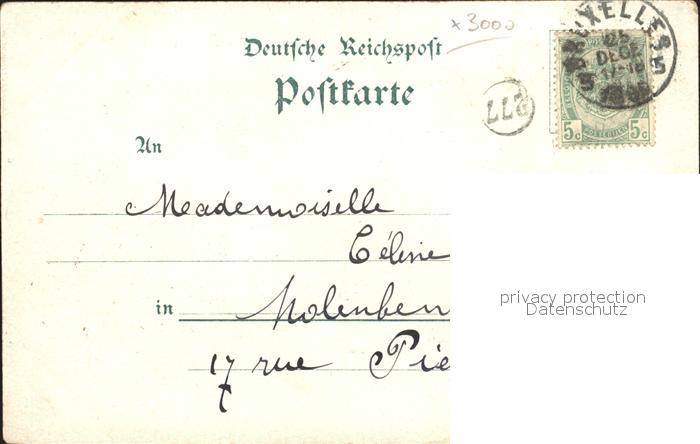 x 3000
Deutsche Reichspost
Postkarte
BRUXELLES 5
DECE
5c 5c
277
An
Mademoiselle
Céline
in Molenbeek
17 rue Pie
privacy protection
Datenschutz